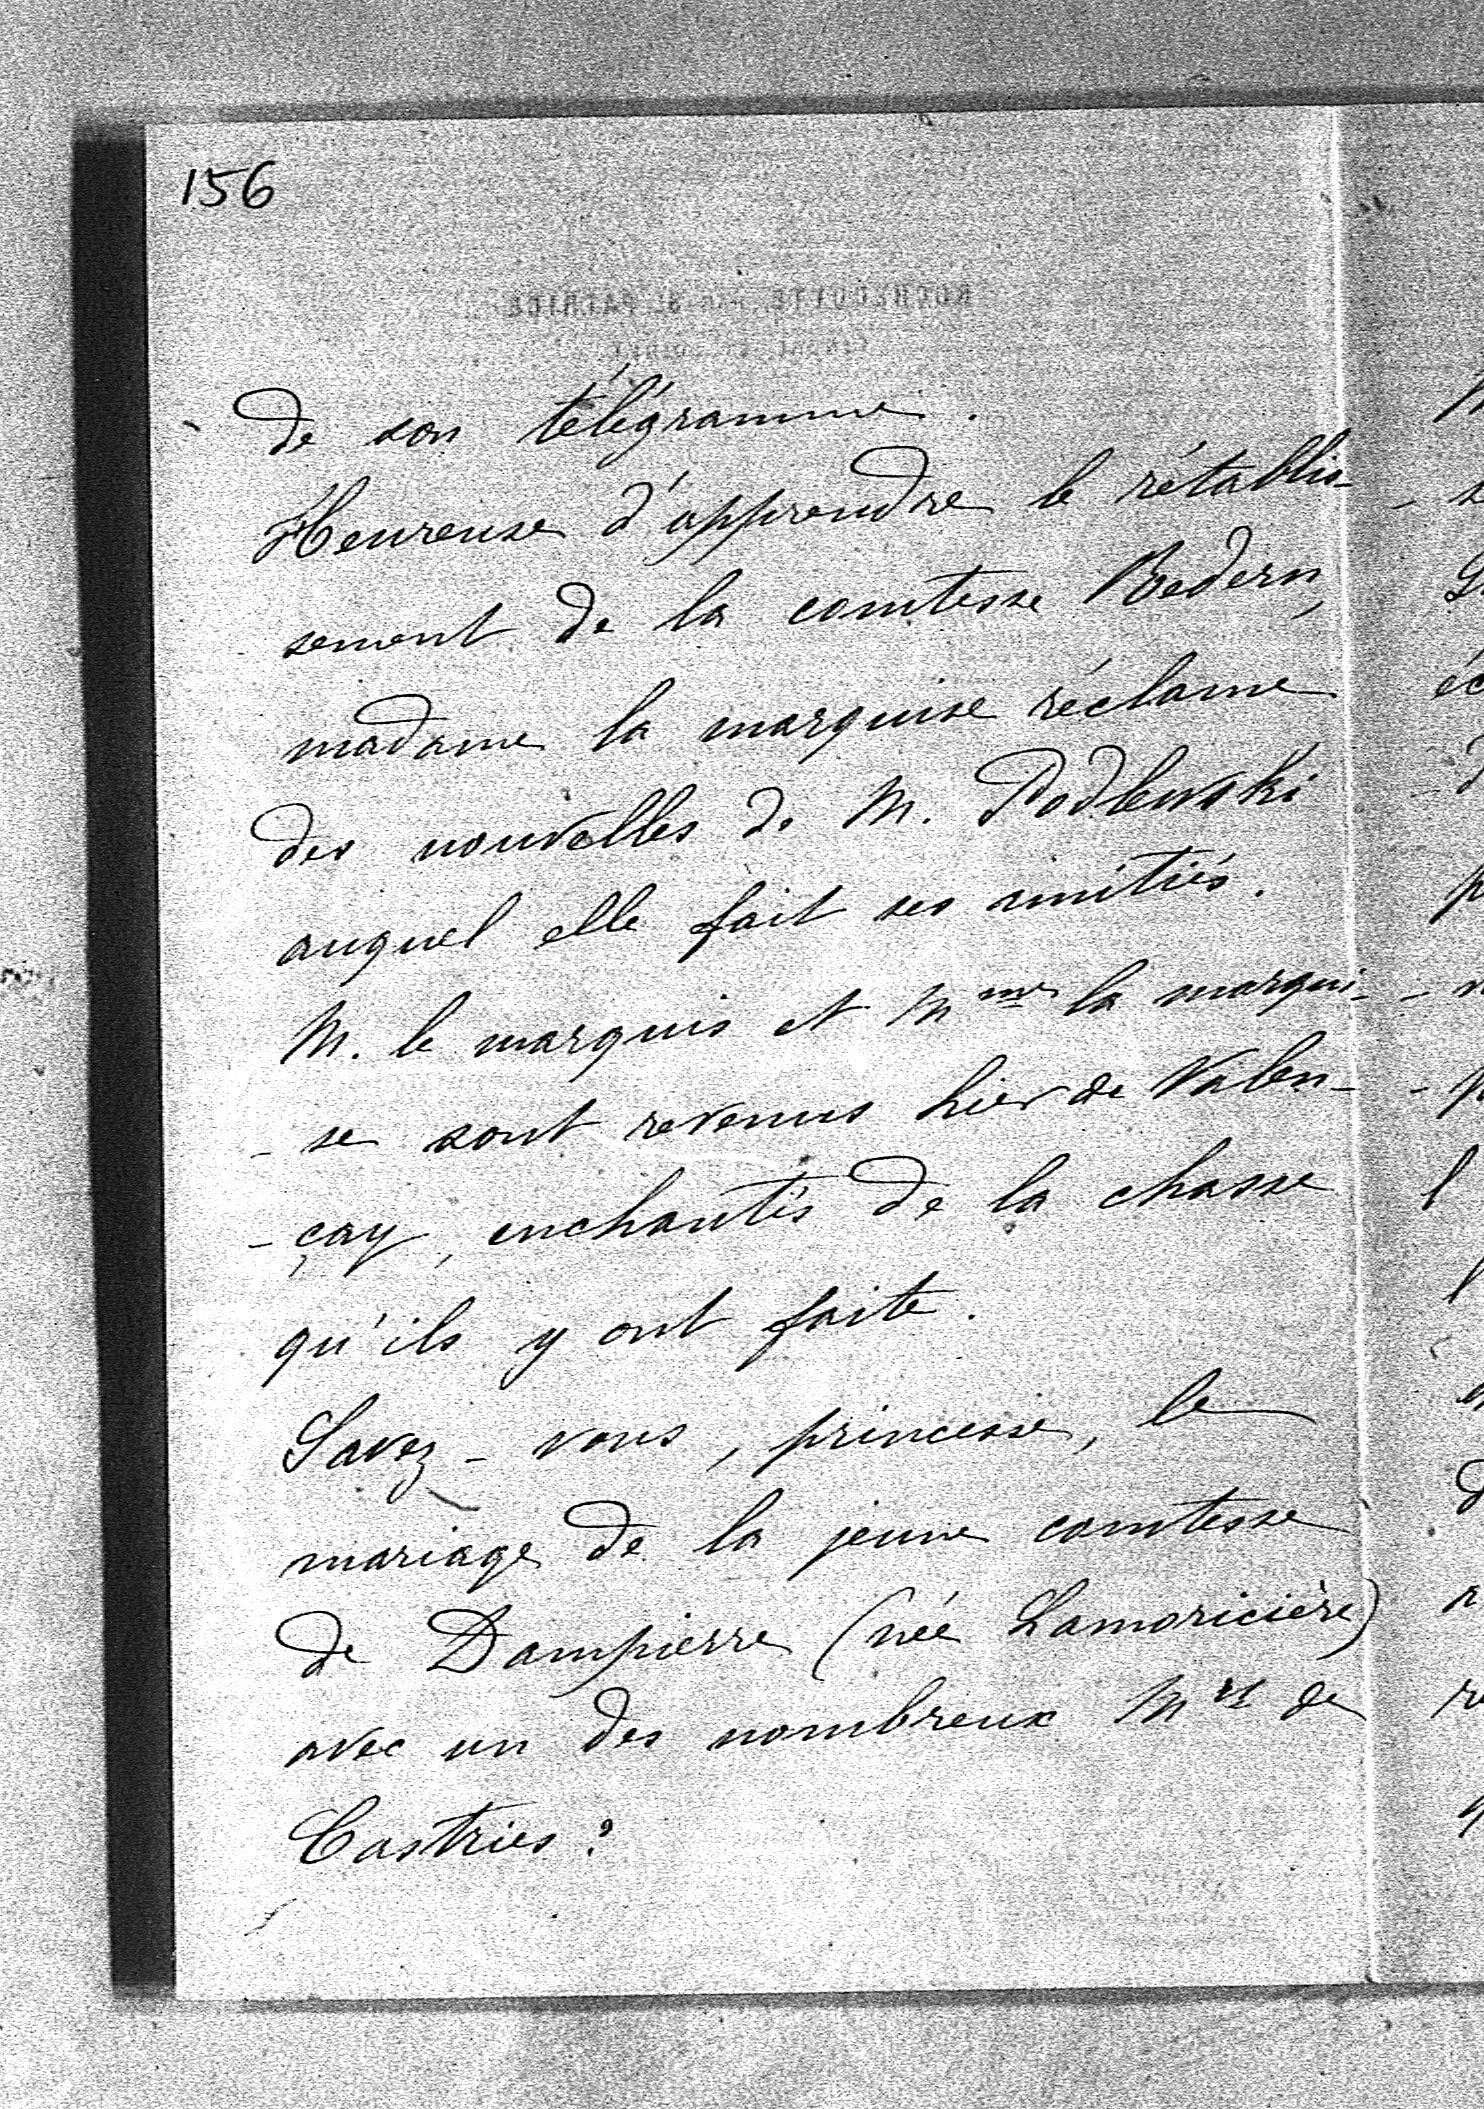 156
de son télégramme.
Heureuse d'apprendre le rétablis-
sement de la comtesse Redern,
madame la marquise réclame
des nouvelles de M. Podlewski
auquel elle fait ses amitiés.
M. le marquis et Mme la marqui-
-se sont revenus hier de Valen-
-çay, enchantés de la chasse
qu'ils y ont faite.
Savez-vous, princesse, le
mariage de la jeune comtesse
de Dampierre (née Lamoricière)
avec un des nombreux Mrs de
Castries?